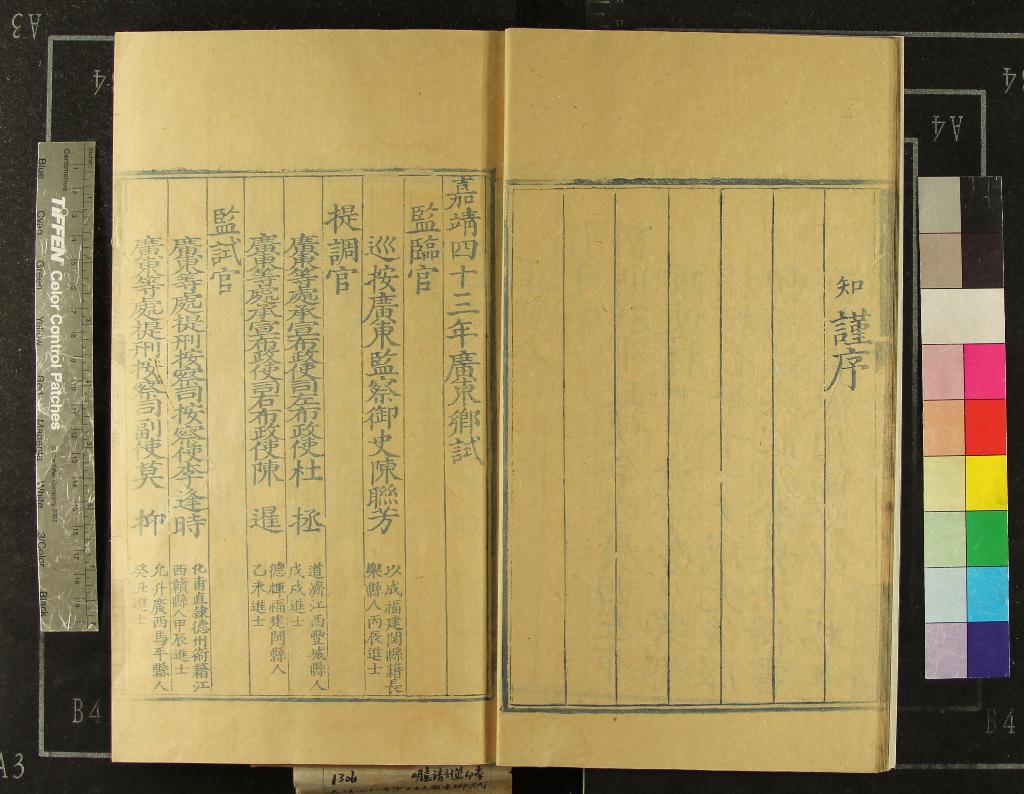 知謹序
嘉靖四十三年廣東鄉試
監臨官
巡按廣東監察御史陳聯芳
以成福建閩縣籍長
樂縣人丙辰進士
提調官
廣東等處承宣布政使司左布政使杜 拯
道濟江西豐城縣人
戊戌進士
廣東等處承宣布政使司右布政使陳 暹
德輝福建閩縣人
乙未進士
監試官
廣東等處提刑按察司按察使李逢時
化甫直隸德州衞籍江
西贛縣人甲辰進士
廣東等處提刑按察司副使莫 抑
允升廣西馬平縣人
癸丑進士
TIFFEN Color Control Patches
Centimetres
Inches
Blue
Cyan
Green
Yellow
Red
Magenta
White
3/Color
Black
A3
A4
A4
B4
B4
A3
1306